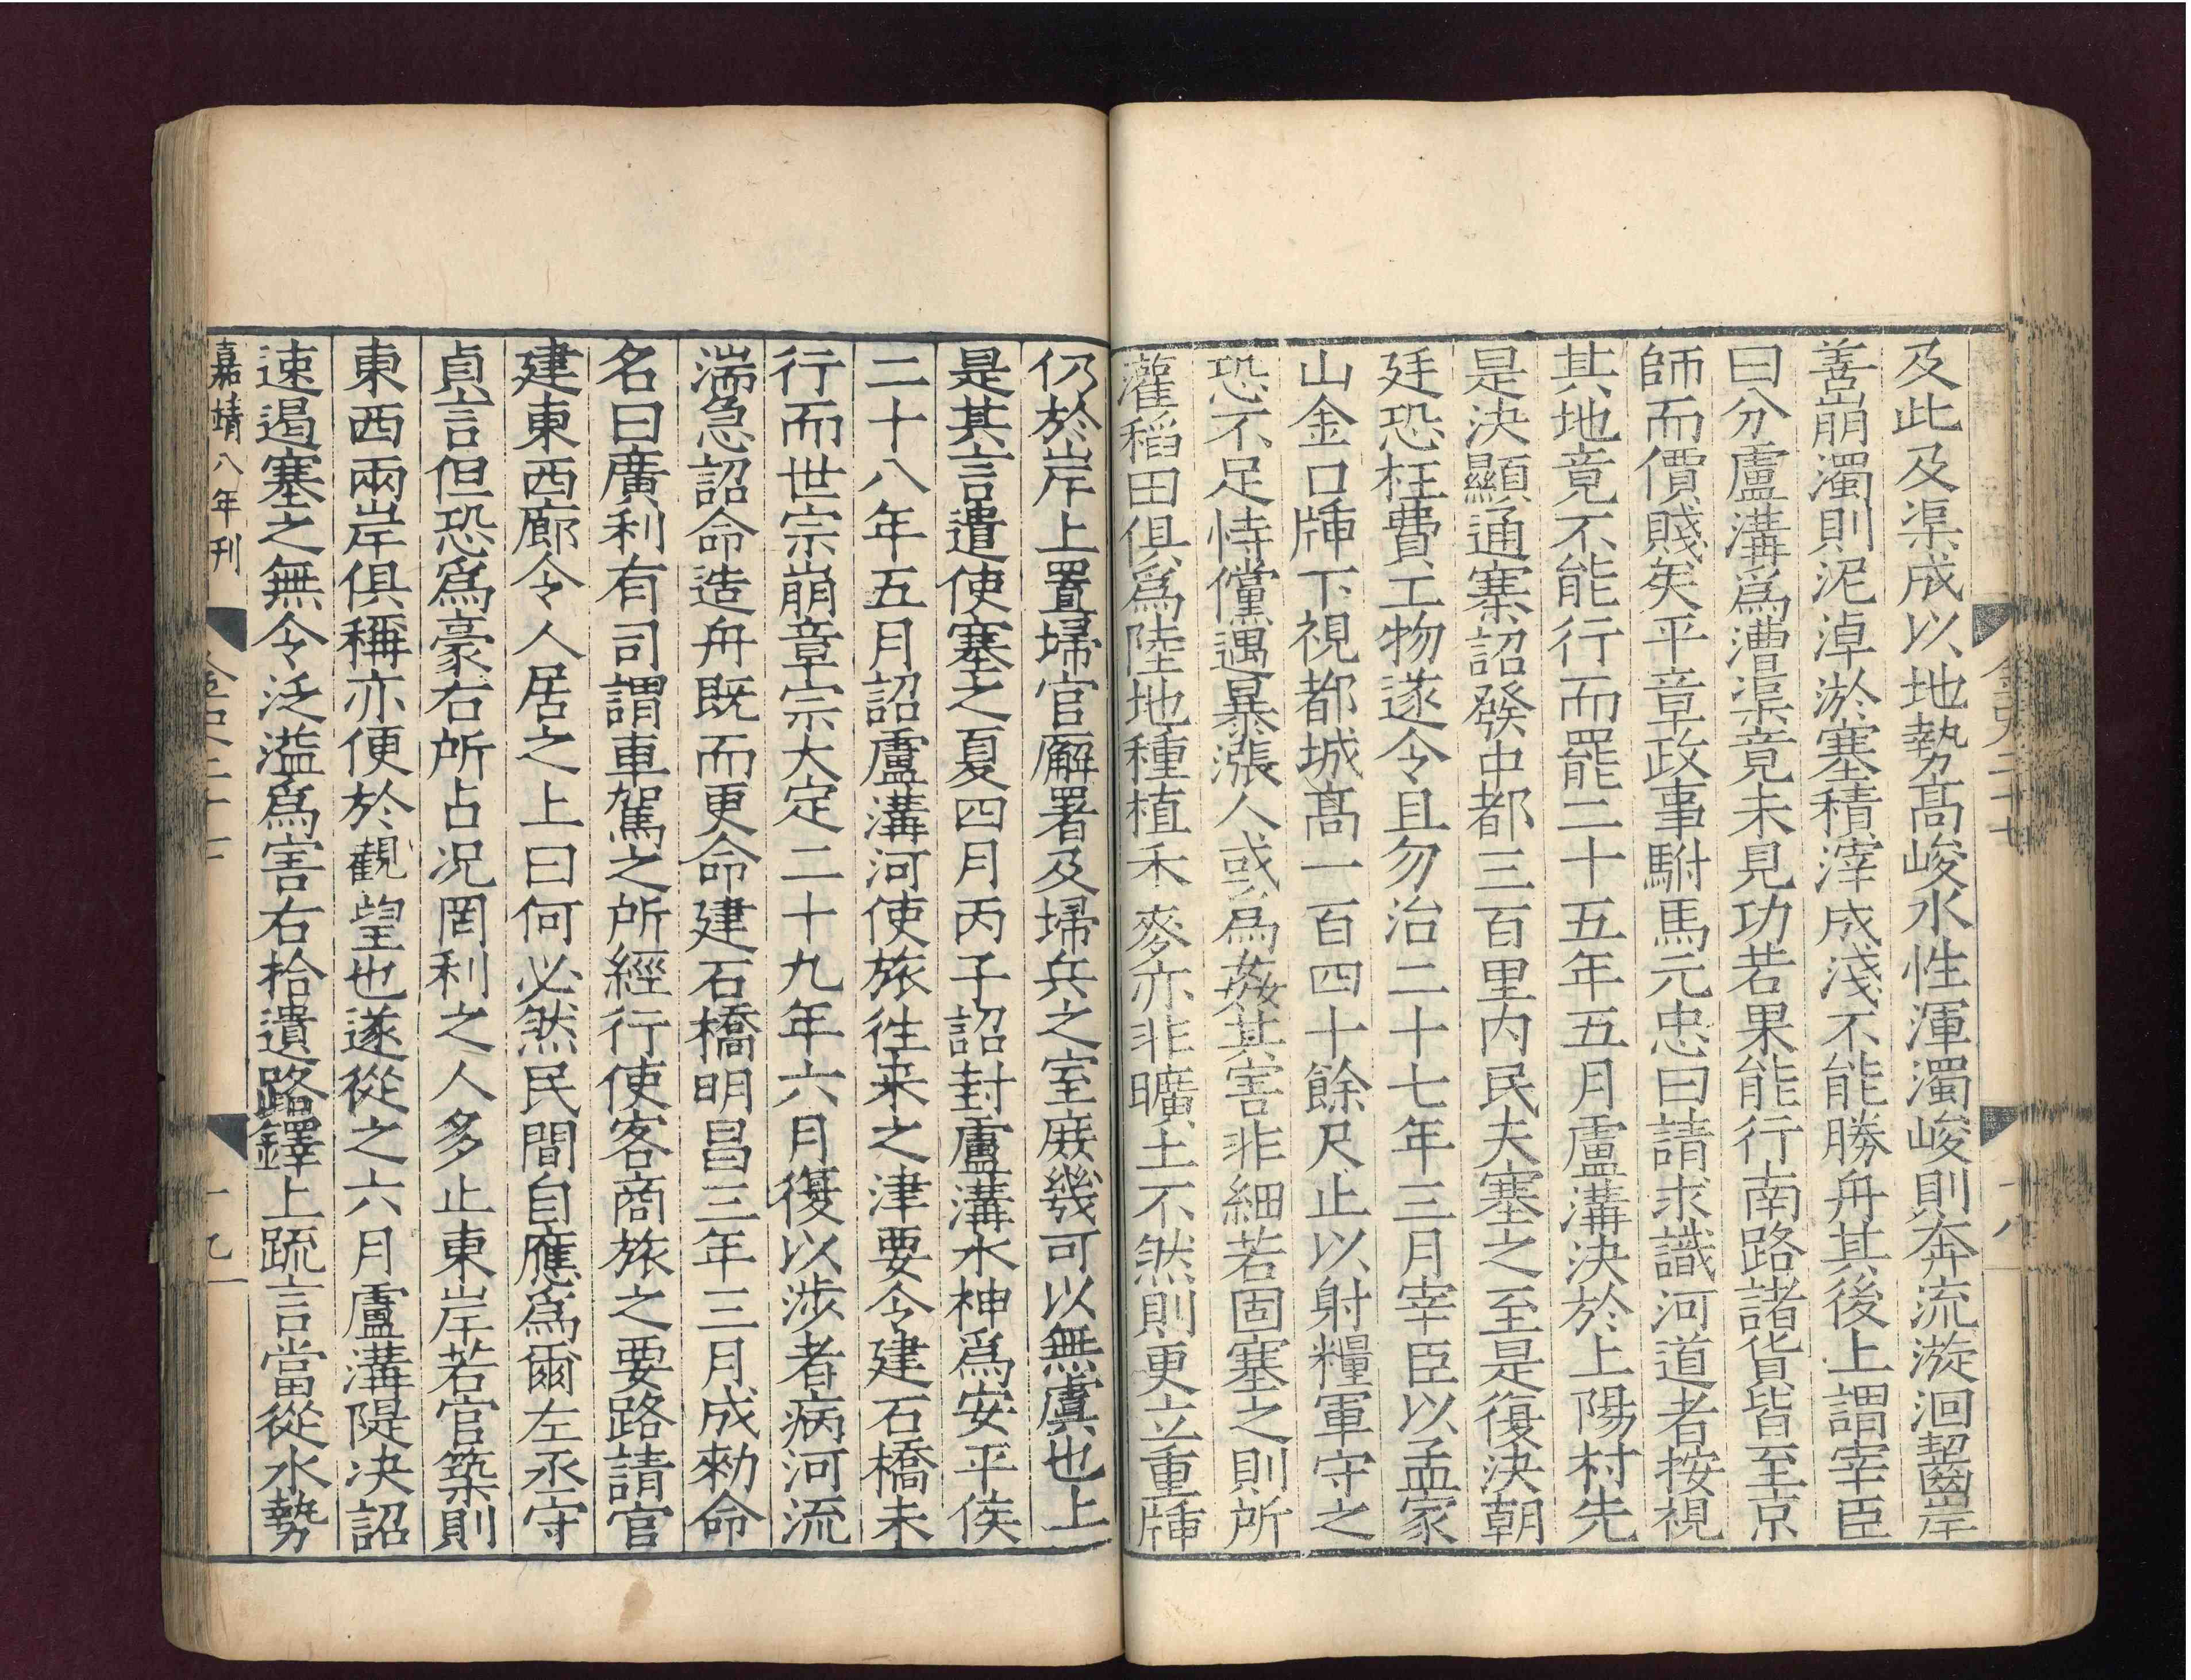 金史二十七
十八
及此及渠成以地勢髙峻水性渾濁峻則奔流漩洄齧岸
善崩濁則泥淖淤塞積滓成淺不能勝舟其後上謂宰臣
曰分盧溝爲漕渠竟未見功若果能行南路諸貨皆至京
師而價賤矣平章政事駙馬元忠曰請求識河道者按視
其地竟不能行而罷二十五年五月盧溝決於上陽村先
是決顯通寨詔發中都三百里内民夫塞之至是復決朝
廷恐枉費工物遂令且勿治二十七年三月宰臣以孟家
山金口牐下視都城髙一百四十餘尺止以射糧軍守之
恐不足恃儻遇暴漲人或爲姦其害非細若固塞之則所
灌稻田俱爲陸地種植禾麥亦非曠土不然則更立重牐
仍於岸上置埽官廨署及埽兵之室庶幾可以無虞也上
是其言遣使塞之夏四月丙子詔封盧溝水神爲安平侯
二十八年五月詔盧溝河使旅往来之津要令建石橋未
行而世宗崩章宗大定二十九年六月復以涉者病河流
湍急詔命造舟既而更命建石橋明昌三年三月成勑命
名曰廣利有司謂車駕之所經行使客商旅之要路請官
建東西廊令人居之上曰何必然民間自應爲爾左丞守
貞言但恐爲豪右所占况罔利之人多止東岸若官築則
東西兩岸俱稱亦便於觀望也遂從之六月盧溝隄决詔
速遏塞之無令泛溢爲害右拾遺路鐸上疏言當從水勢
嘉靖八年刊